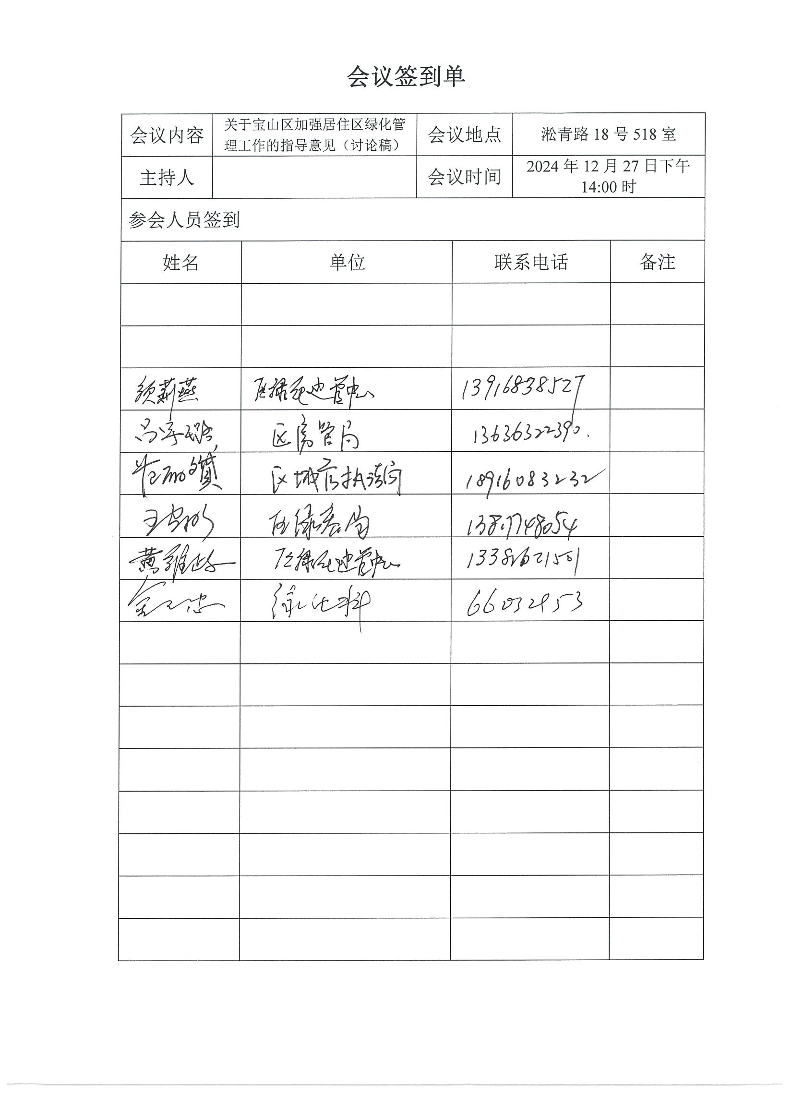 会议签到单
会议内容
关于宝山区加强居住区绿化管
理工作的指导意见（讨论稿）
会议地点
淞青路 18 号 518 室
主持人
会议时间
2024 年 12 月 27 日下午
14:00 时
参会人员签到
姓名 单位 联系电话 备注
须莉燕 区绿化建管中心 13916838527
区房管局 13636322390.
区城管执法局 18916083232
区绿容局
黄 区绿化建管中心 13382621501
绿化科 66032953